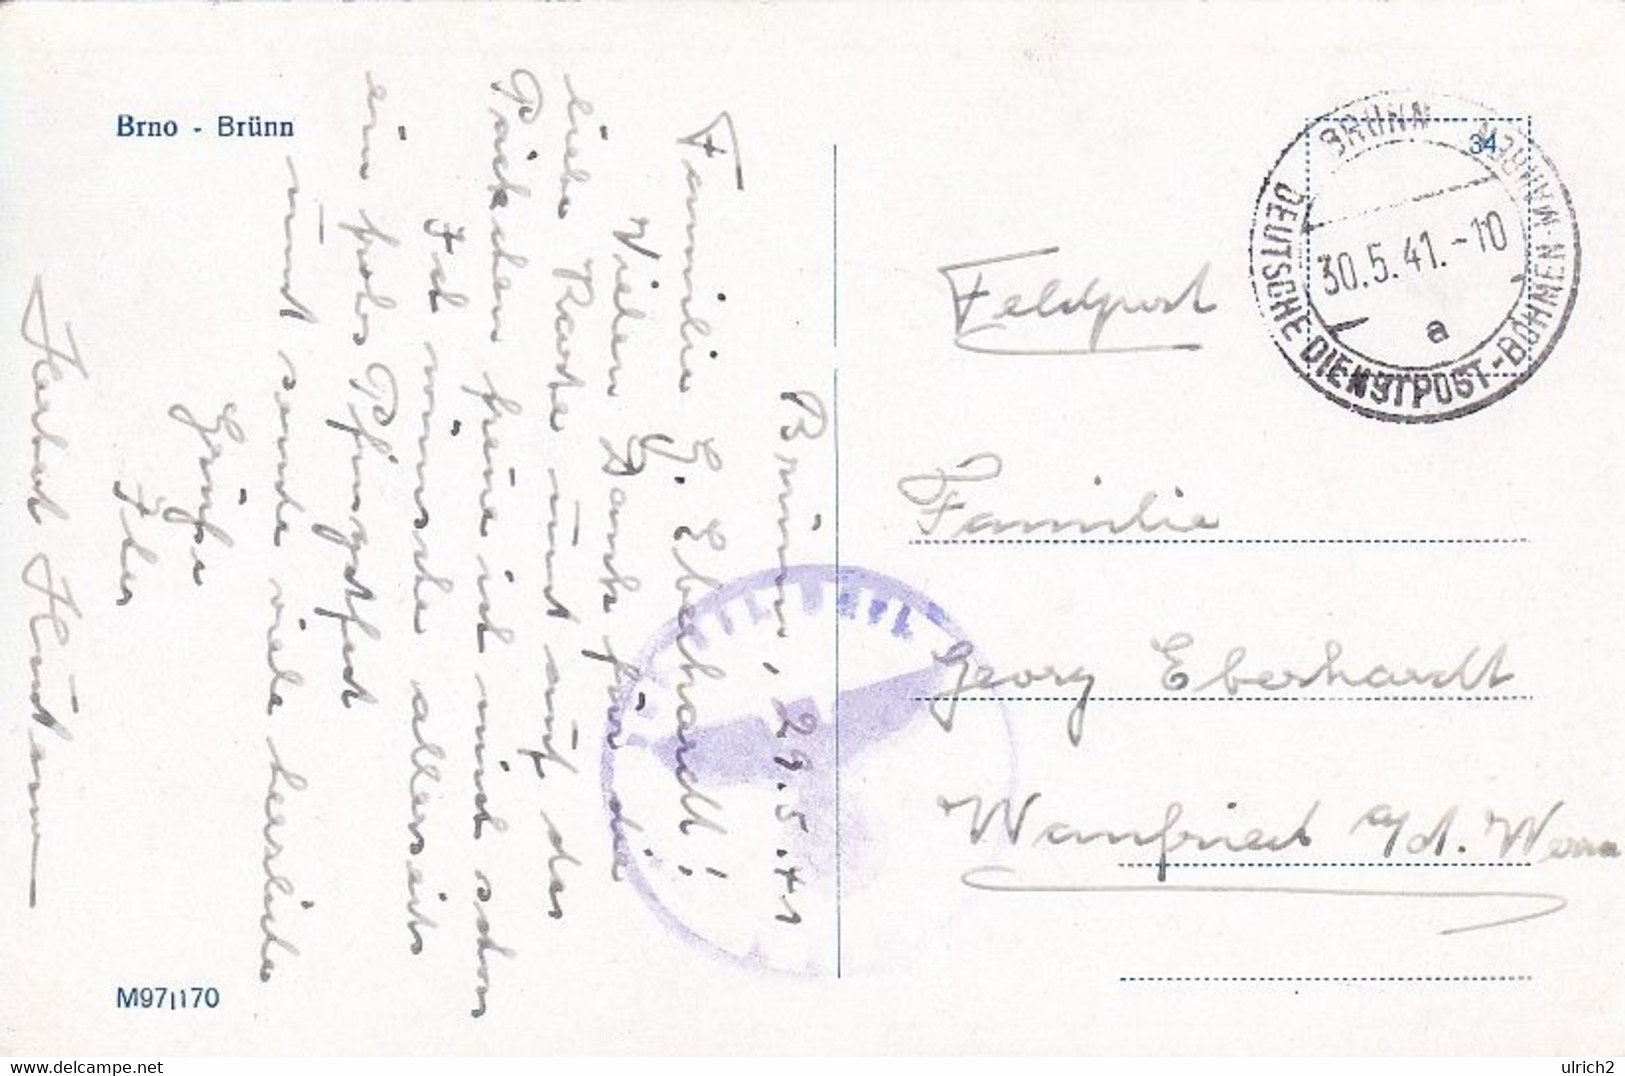 Brno - Brünn
Brünn, 29.5.41
Familie G. Eberhardt!
Vielen Dank für die
liebe Karte und auf das
Päckchen freue ich mich schon
Ich wünsche allerseits
ein frohes Pfingstfest
und sende viele herzliche
Grüße
Euer
M97|170
BRÜNN
DEUTSCHE DIENSTPOST-BÖHMEN-MÄHREN
30.5.41.-10
a
34
Feldpost
Familie
Georg Eberhardt
Wanfried a/d. Werra